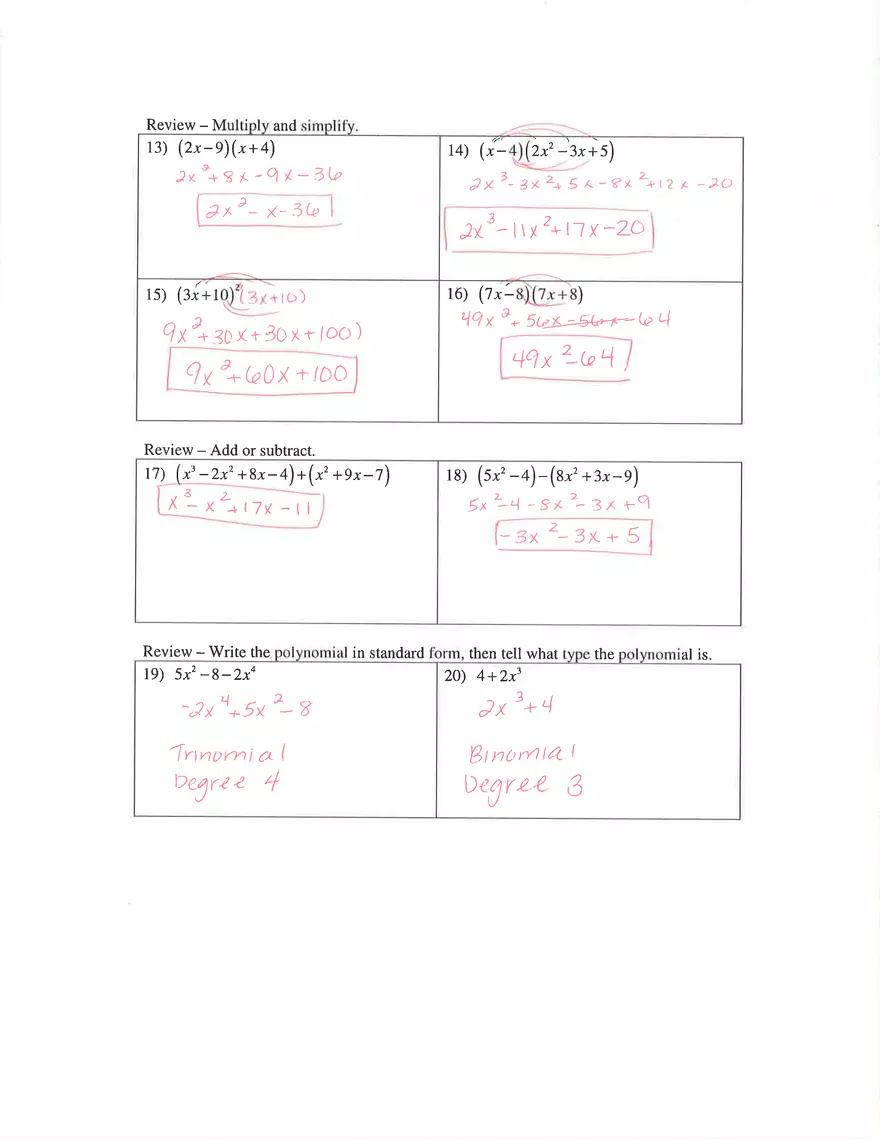 Review – Multiply and simplify.
13) (2x−9)(x+4)
2x²+8x-9x-36
2x²-x-36
14) (x−4)(2x²−3x+5)
2x³-3x²+5x-8x²+12x-20
2x³-11x²+17x-20
15) (3x+10)²(3x+10)
9x²+30x+30x+100)
9x²+60x+100
16) (7x−8)(7x+8)
49x²+56x-56x-64
49x²-64
Review – Add or subtract.
17) (x³−2x²+8x−4)+(x²+9x−7)
x³-x²+17x-11
18) (5x²−4)−(8x²+3x−9)
5x²-4-8x²-3x+9
-3x²-3x+5
Review – Write the polynomial in standard form, then tell what type the polynomial is.
19) 5x²−8−2x⁴
-2x⁴+5x²-8
Trinomial
Degree 4
20) 4+2x³
2x³+4
Binomial
Degree 3